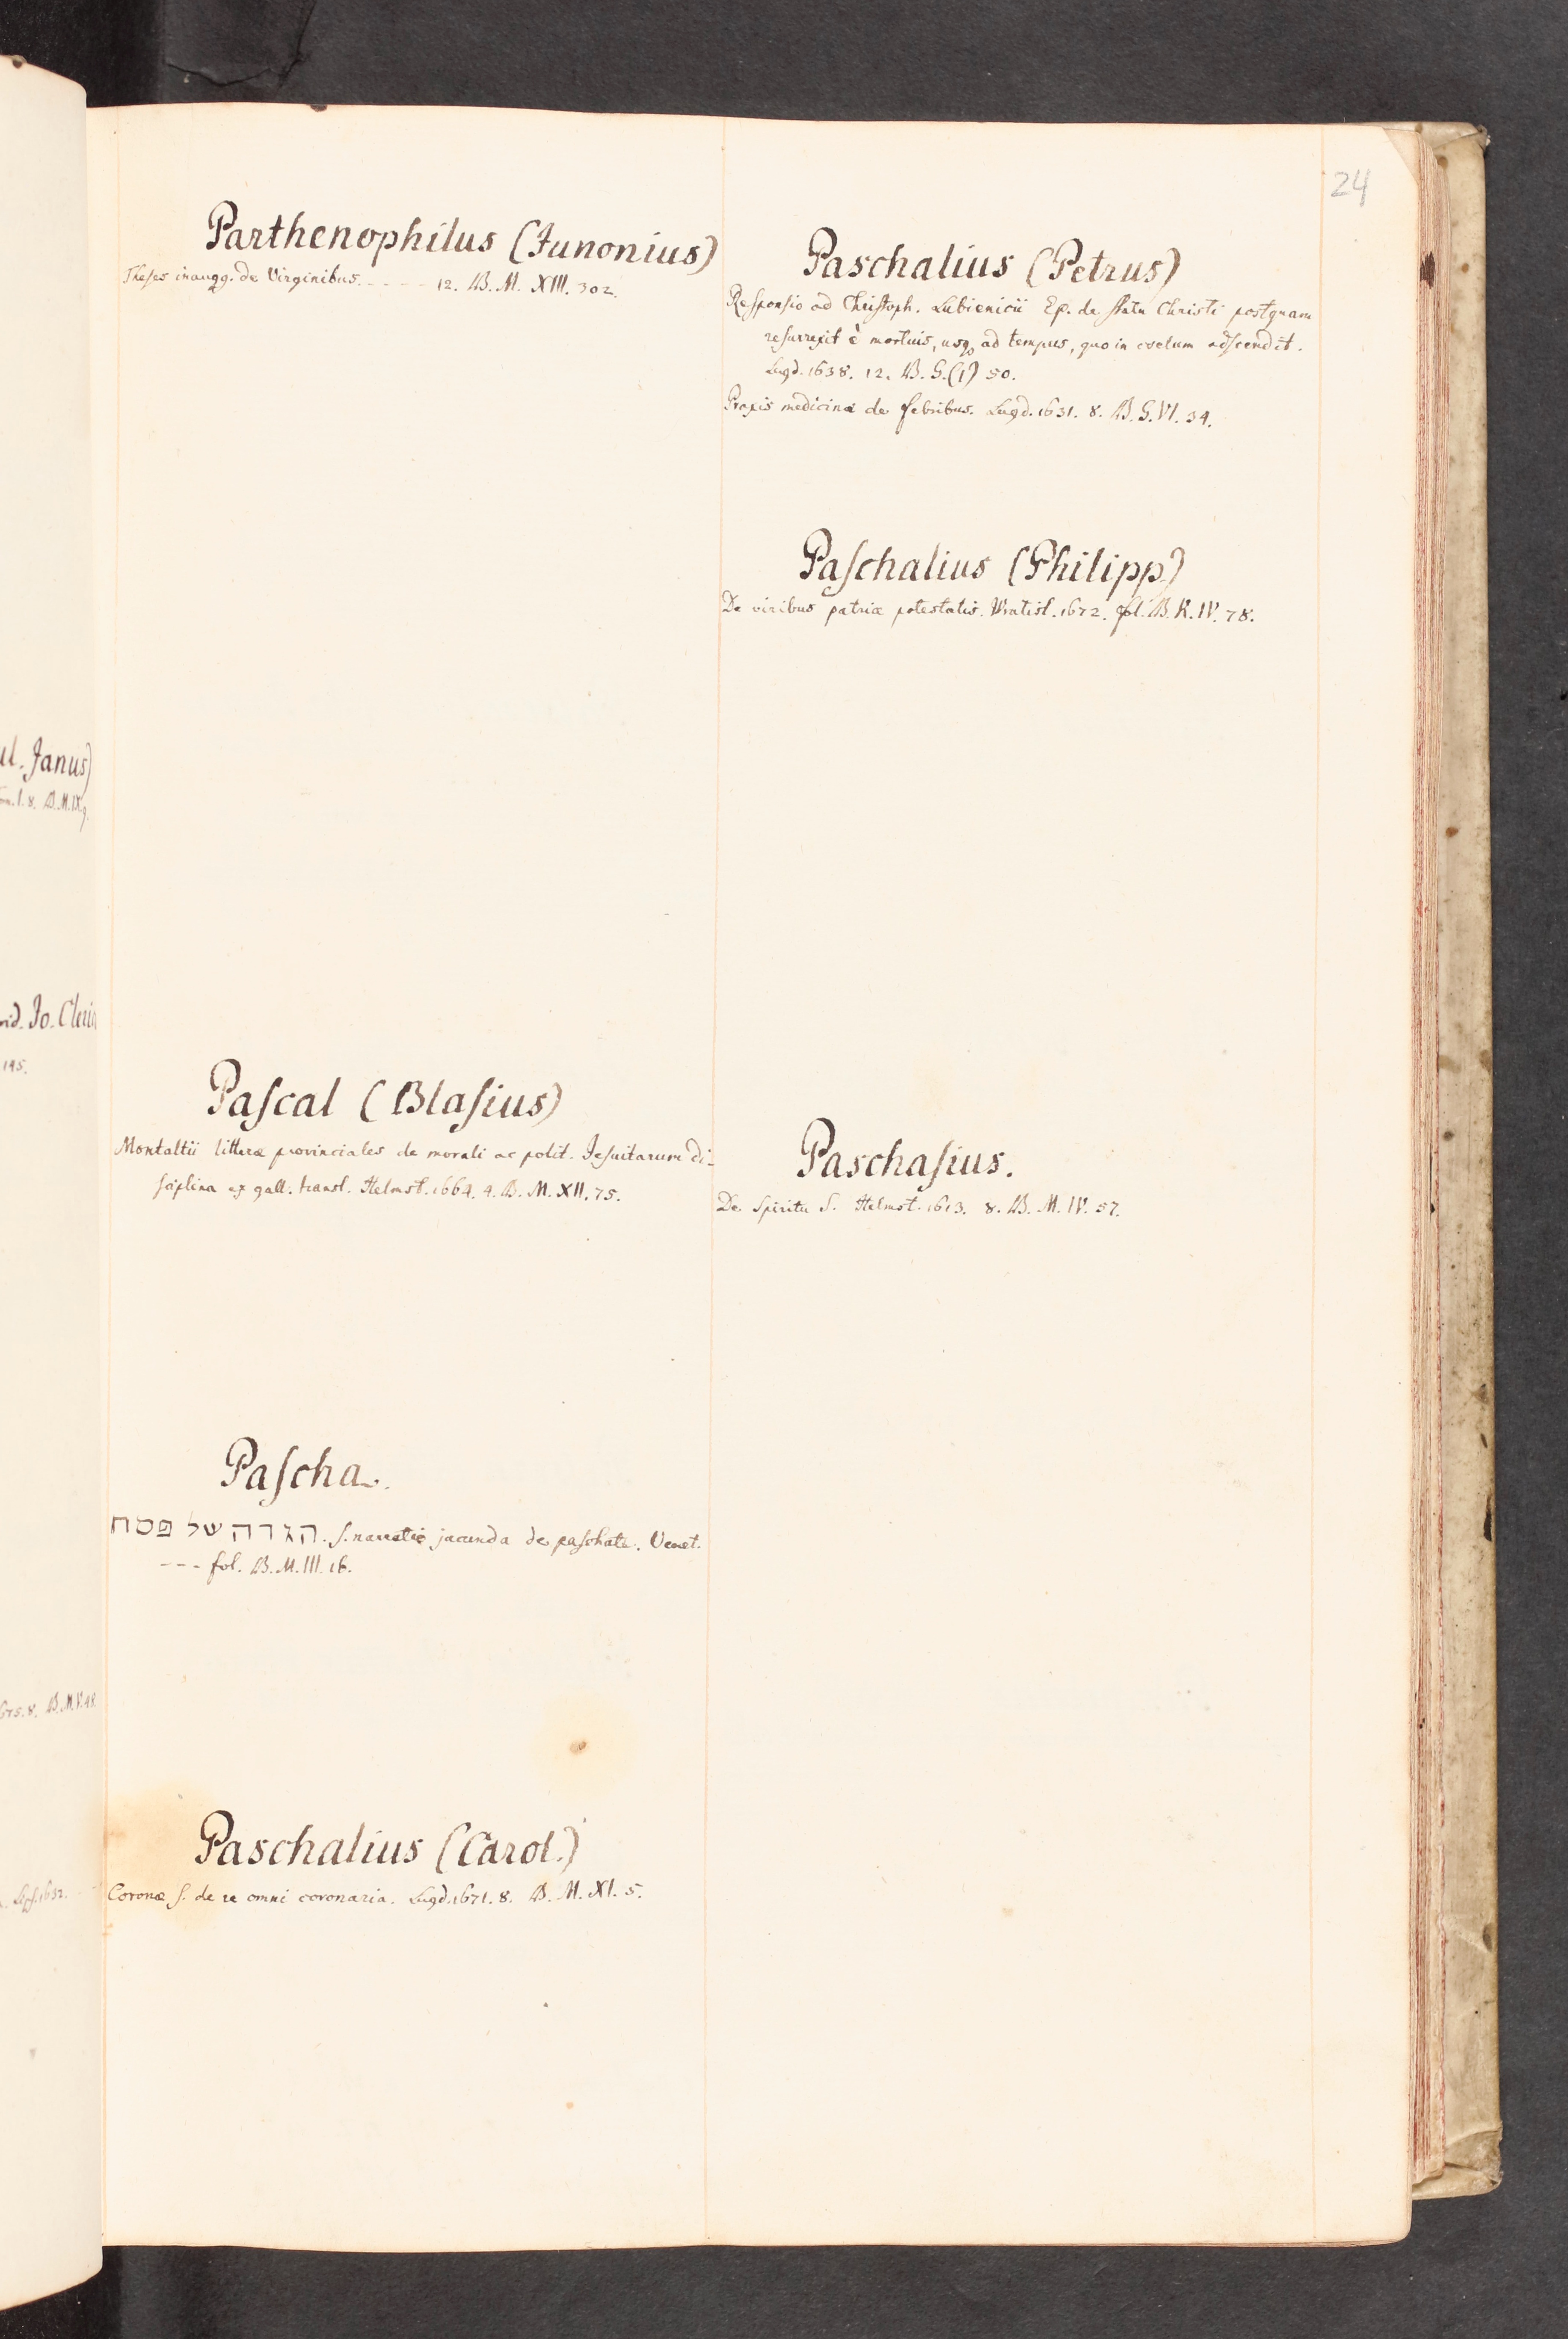 24
Parthenophilus (Junonius)
Theses inaugg. de Virginibus. - - - - 12. B. M. XIII. 302.
Paſcal (Blaſius)
Montaltii litteræ provinciales de morali ac polit. Jeſuitarum di-
ſciplina ex gall. transl. Helmst. 1664. 4. B. M. XII. 75.
Paſcha.
הגדה של פסח. ſ. narratio jucunda de paſchate. Venet.
- - - fol. B. M. III. 16.
Paschalius (Carol.)
Coronæ ſ. de re omni coronaria. Lugd. 1671. 8. B. M. XI. 5.
Paschalius (Petrus)
Reſponſio ad Chriſtoph. Lubienicii Ep. de ſtatu Christi postquam
reſurrexit è mortuis, usq, ad tempus, quo in coelum adſcendit.
Lugd. 1638. 12. B. G. (1) 50.
Praxis medicinæ de febribus. Lugd. 1631. 8. B. G. VI. 34.
Paſchalius (Philipp.)
De viribus patriæ potestatis. Vratisl. 1672. fol. B. K. IV. 78.
Paschaſius.
De Spiritu S. Helmst. 1613. 8. B. M. IV. 57.
ul. Janus)
1. 8. B. M. IX. 9.
Jo. Cleric
195.
675. 8. B. M. V. 48.
Lipſ. 1632.